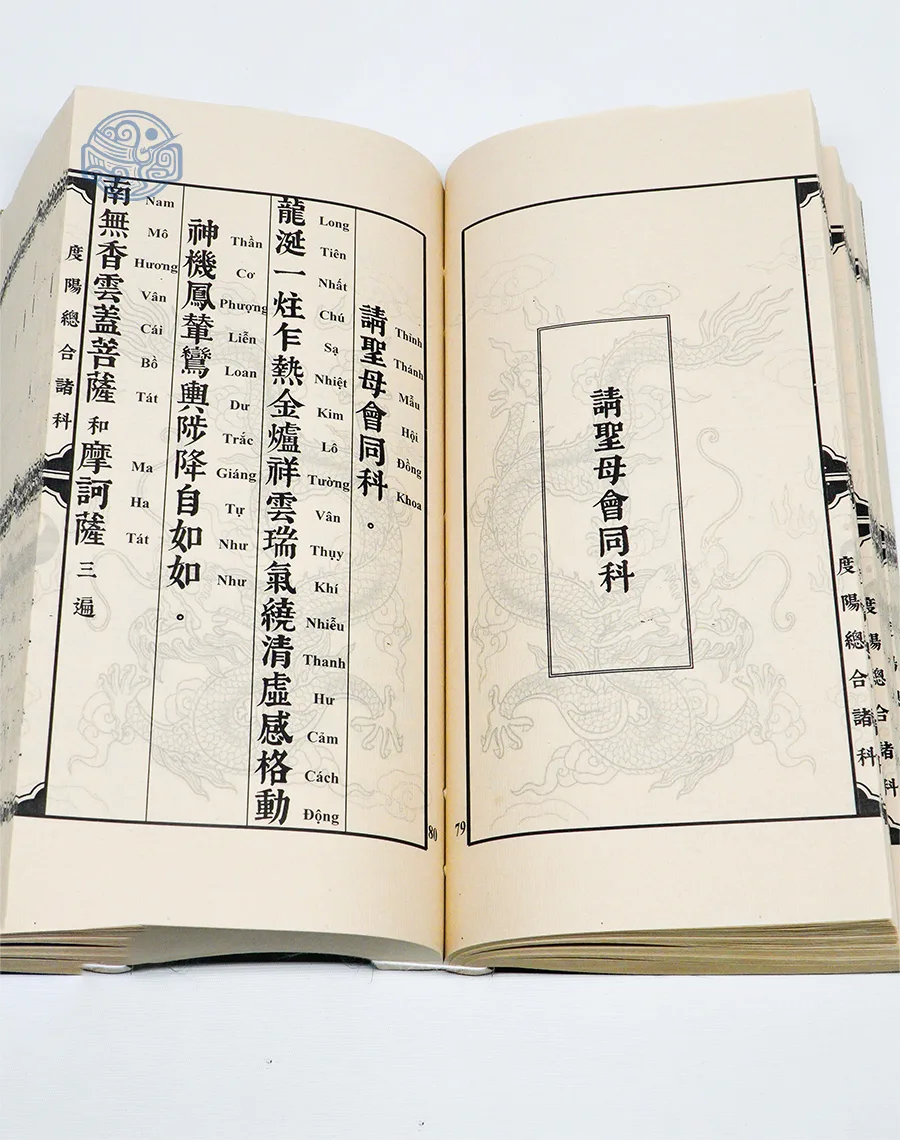 請聖母會同科
度陽總合諸科
79
Thỉnh Thánh Mẫu Hội Đồng Khoa
請聖母會同科。
Long Tiên Nhất Chú Sạ Nhiệt Kim Lô Tường Vân Thụy Khí Nhiễu Thanh Hư Cảm Cách Động
龍涎一炷乍熱金爐祥雲瑞氣繞清虛感格動
Thần Cơ Phượng Liễn Loan Dư Trắc Giáng Tự Như Như
神機鳳輦鸞輿陟降自如如。
Nam Mô Hương Vân Cái Bồ Tát Ma Ha Tát
南無香雲蓋菩薩和摩訶薩三遍
度陽總合諸科
80